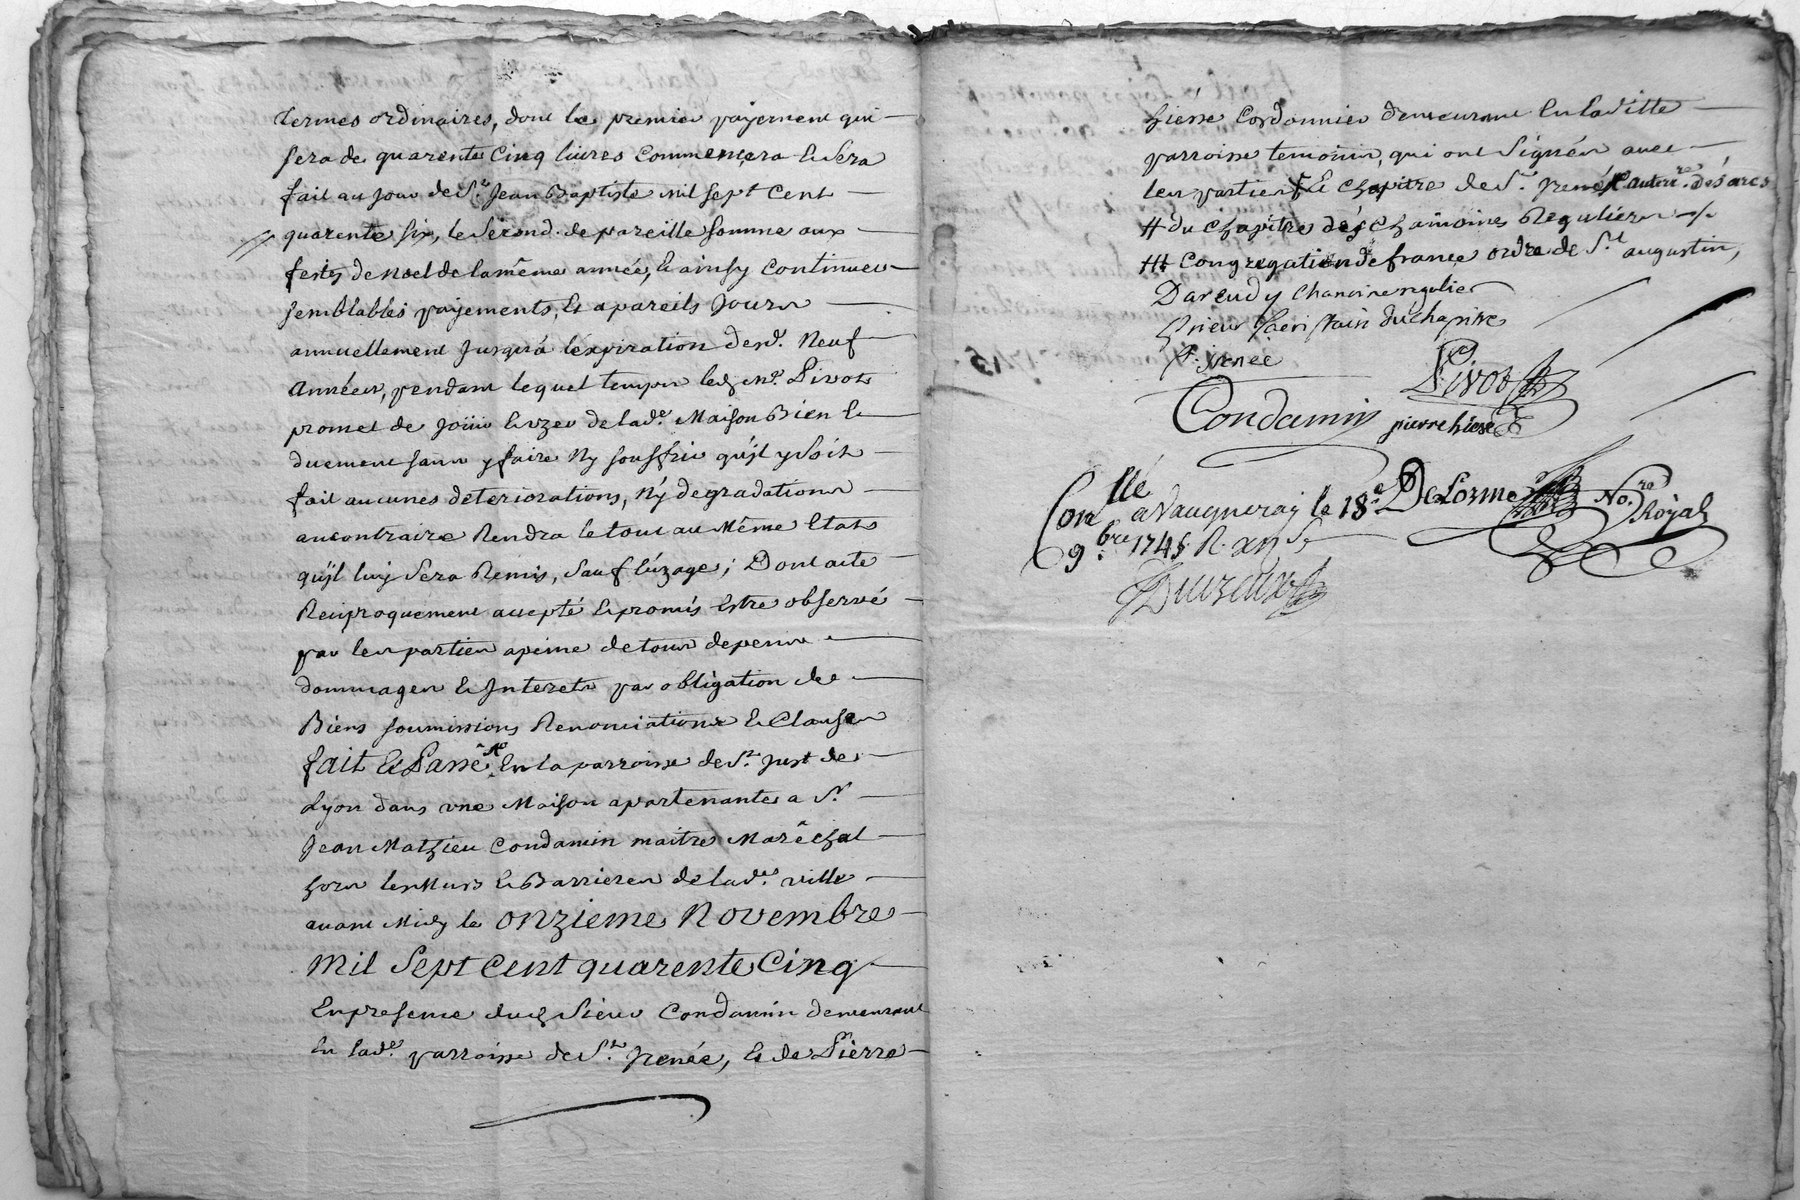 termes ordinaires, dont le premier payement qui
sera de quarente Cinq livres commencera & sera
fait au jour de St. Jean Baptiste mil sept Cent
quarente six, le second de pareille somme aux
festes de noel de la même année, & ainsy continuer
semblables payements, & a pareils jours
annuellement jusqu'a l'expiration desd. Neuf
Années, pendant lequel temps led. sr. Pivot
promet de joüir & uzer de lade. Maison Bien &
duement sans y faire Ny souffrir qu'il y soit
fait aucunes deteriorations, Ny degradations
au contraire Rendra le tout au Même Etat
qu'il luy sera Remis, sauf l'uzage; Dont acte
Reciproquement accepté & promis Estre observé
par les parties a peine de tous depens
dommages & Interets par obligation de
Biens soumissions Renonciations & Clauses
fait & Passé En la parroisse de St. just de
Lyon dans une Maison apartenante a Sr.
Jean Mathieu Condamin maitre Maréchal
hors les Murs & Barrieres de lade. ville
avant Midy le onzieme Novembre
Mil Sept Cent quarente Cinq
En presence dud. Sieur Condamin demeurant
En lade. parroisse de St. Irenée, & de Pierre
hiesse Cordonnier demeurant En lad. ville
parroisse temoins, qui ont Signés avec
les parties & chapitre de St. Irenée
# du chapitre des Chanoines Reguliers
## Congregation de france ordre de St. augustin,
Dareudy chanoine regulier
prieur sacristain du chapitre
St. irenée
Pivot
Condamin pierre hiesse
Conllé a Vaugneray le 18e. DeLorme No.re Royal
9bre 1745 R. xij s.